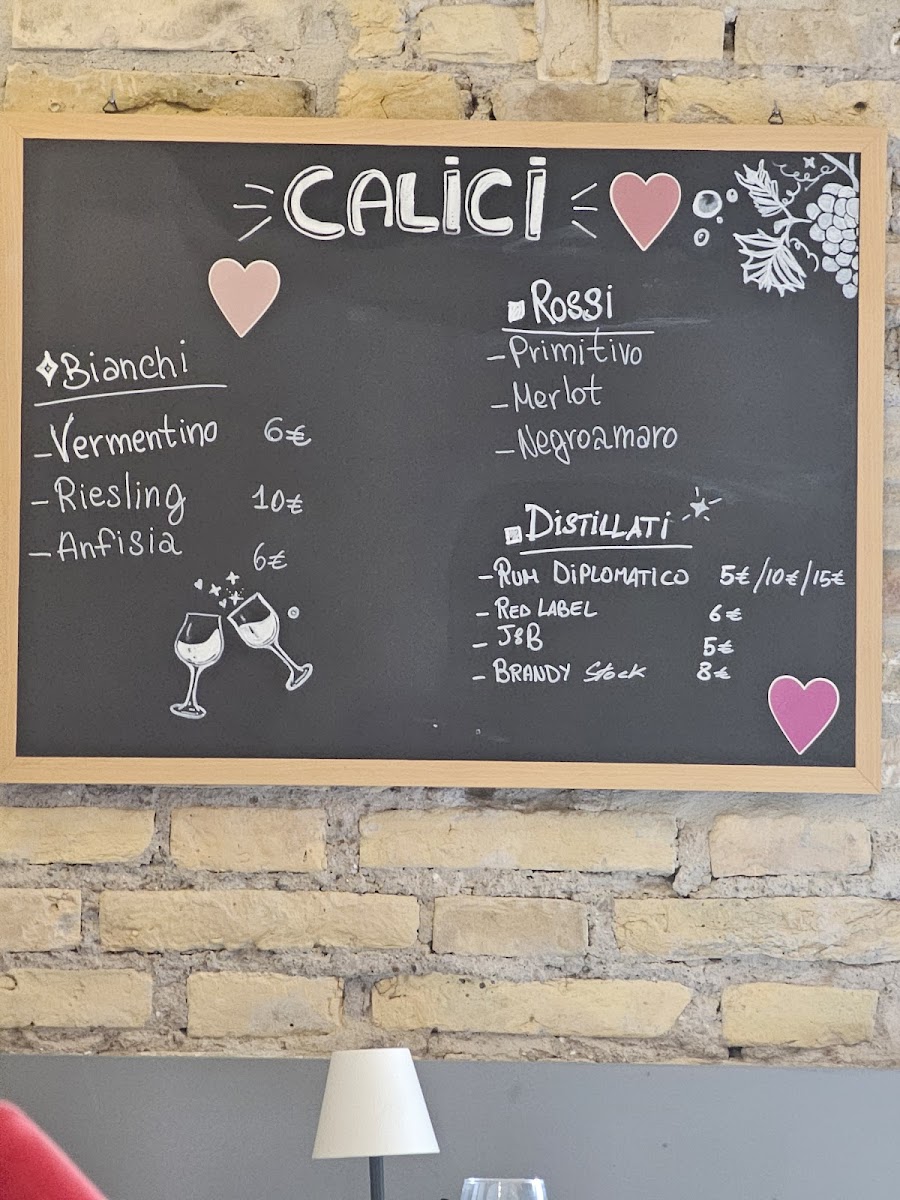 CALICI
Bianchi
-Vermentino 6€
-Riesling 10€
-Anfisia 6€
Rossi
-Primitivo
-Merlot
-Negroamaro
DISTILLATI
-RUM DIPLOMATICO 5€/10€/15€
-RED LABEL 6€
-J&B 5€
-BRANDY Stock 8€